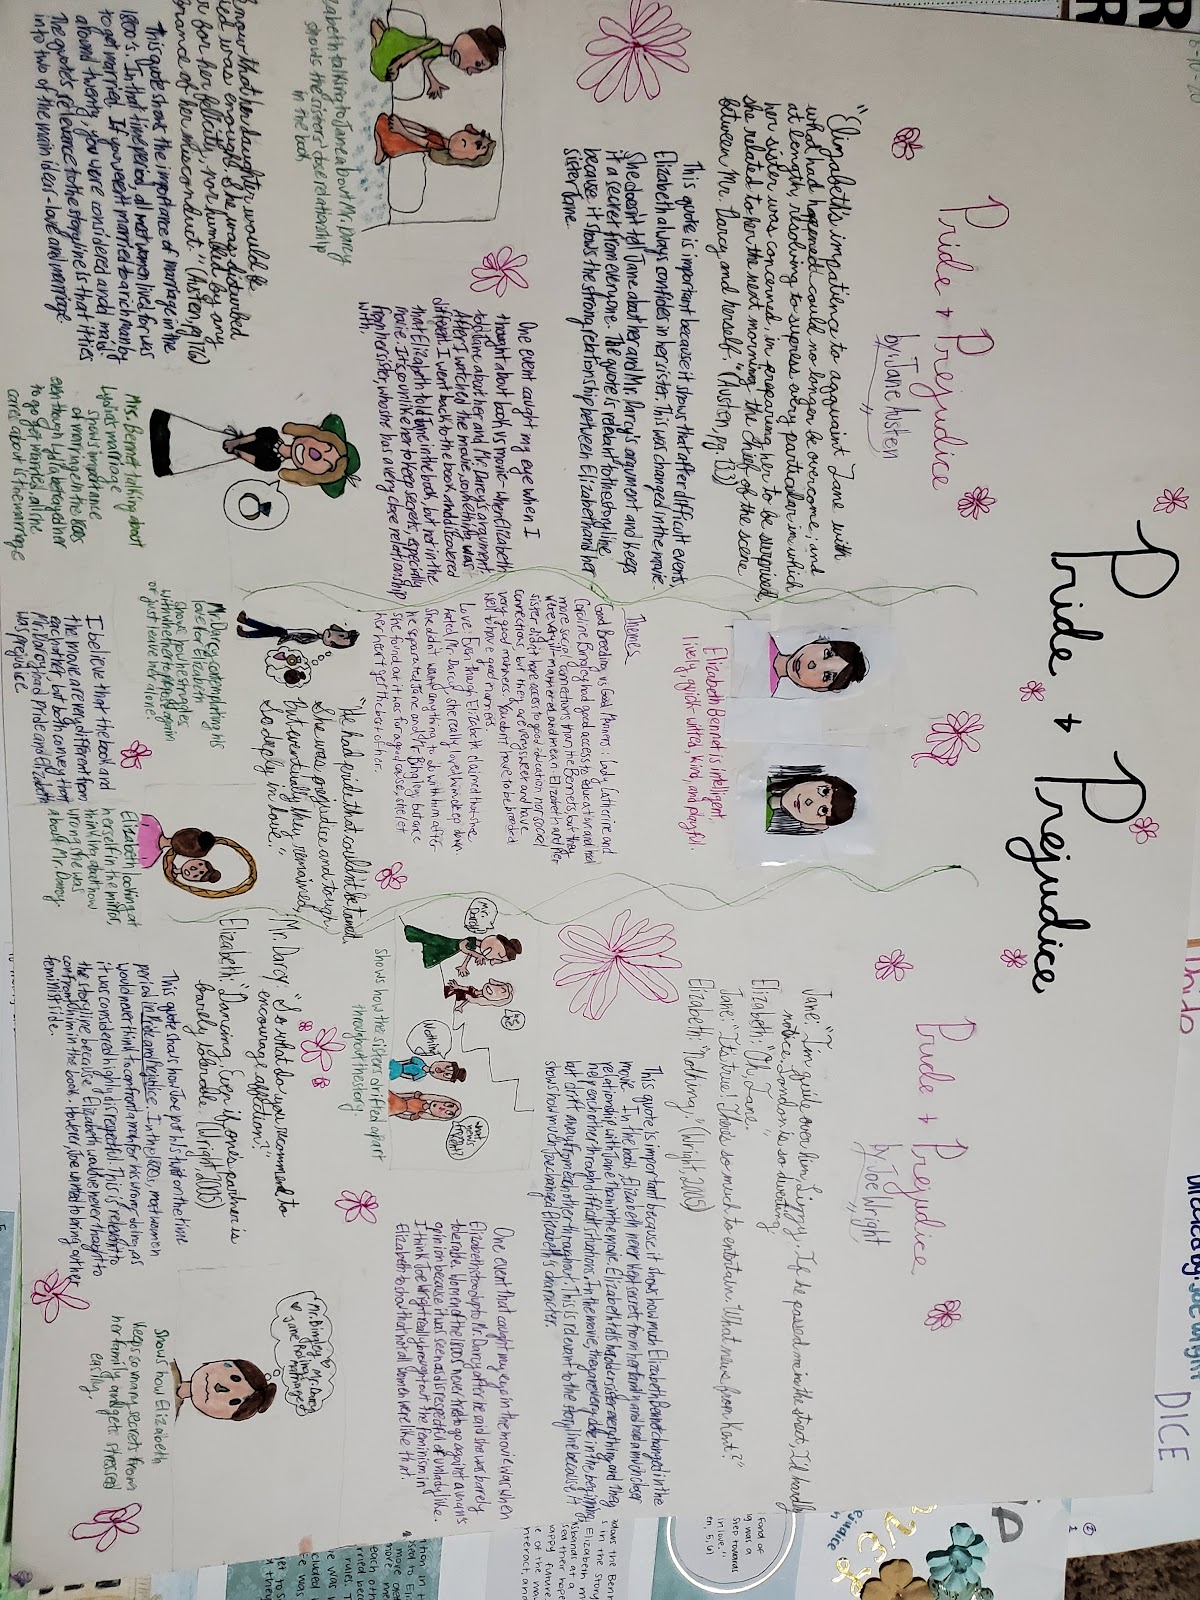 Pride + Prejudice
Pride + Prejudice
by Jane Austen
"Elizabeth's impatience to acquaint Jane with
what had happened could no longer be overcome; and
at length, resolving to supress every particular in which
her sister was concerned, in preparing her to be surprised,
she related to her the next morning the chief of the scene
between Mr. Darcy and herself." (Austen, pg.
This quote is important because it shows that after difficult events
Elizabeth always confides in her sister. This was changed in the movie.
She doesn't tell Jane about her and Mr. Darcy's argument and keeps
it a secret from everyone. The quote is relevant to the story line
because it shows the strong relationship between Elizabeth and her
sister Jane.
One event caught my eye when I
thought about book vs movie - when Elizabeth
told Jane about her and Mr. Darcy's argument.
After I watched the movie, something was
different. I went back to the book and discovered
that Elizabeth told Jane in the book, but not in the
movie. It is so unlike her to keep secrets, especially
from her sister, who she has a very close relationship
with.
Elizabeth talking to Jane about Mr. Darcy
shows the sisters' close relationship
in the book
know that her daughter would be
was enough. She was disturbed
for her felicity, nor humbled by any
of her misconduct." (Austen, pg
This quote shows the importance of marriage in the
1800's. In that time period, all most women lived for was
to get married. If you weren't married to a rich man by
around twenty, you were considered an old maid.
The quote's relevance to the story line is that it ties
into two of the main ideas - love and marriage.
Mrs. Bennet talking about
Lydia's marriage
shows importance
of marriage in the 1800s
even though Lydia betrayed her
to go get married, all she
cares about is the marriage
Elizabeth Bennet is intelligent,
lively, quick-witted, kind, and playful.
Themes
Good Breeding vs Good Manners: Lady Catherine and
Caroline Bingley had good access to education and had
more social connections than the Bennets, but they
were very ill-mannered and mean. Elizabeth and her
sister didn't have access to good education nor social
connections, but they are very sweet and have
very good manners. You don't have to be breeded
well to have good manners.
Love: Even though Elizabeth claimed that she
hated Mr. Darcy, she really loved him deep down.
She didn't want anything to do with him after
he separated Jane and Mr. Bingley, but once
she found out it was for a good cause, she let
her heart get the best of her.
"He had pride that couldn't be tamed,
She was prejudice and tough
But eventually they remained,
So deeply in love."
Mr. Darcy contemplating his
love for Elizabeth
shows how he struggles
with whether to propose again
or just leave her alone?
I believe that the book and
the movie are very different from
each other, but both convey that
Mr. Darcy had Pride and Elizabeth
was prejudice
Elizabeth looking at
herself in the mirror,
thinking about how
wrong she was
about Mr. Darcy
Pride + Prejudice
by Joe Wright
Jane: "I'm quite over him, Lizzy. If he passed me in the street, I'd hardly
notice. London is so diverting
Elizabeth: "Oh, Jane."
Jane: "It's true! There's so much to entertain. What news from Kent?"
Elizabeth: "Nothing." (Wright, 2005)
This quote is important because it shows how much Elizabeth Bennet changed in the
movie. In the book, Elizabeth never kept secrets from her family and had a much closer
relationship with Jane than in the movie. Elizabeth tells her older sister everything and they
help each other through difficult situations. In the movie, they are very close in the beginning
but drift away from each other throughout. This is relevant to the storyline because it
shows how much Joe changed Elizabeth's character.
Mr. Darcy!
Nothing
What news from Kent?
shows how the sisters drifted apart
throughout the story.
One event that caught my eye in the movie was when
Elizabeth stood up to Mr. Darcy after he said she was barely
tolerable. Women of the 1800s never tried to go against a man's
opinion because it was seen as disrespectful or unlady like.
I think Joe Wright really brought out the feminism in
Elizabeth to show that not all women were like that.
Mr. Darcy: "So what do you recommend to
encourage affection?"
Elizabeth: "Dancing. Even if one's partner is
barely tolerable. (Wright, 2005)
This quote shows how Joe put his twist on the time
period in Pride and Prejudice. In the 1800s, most women
would never think to confront a man for his wrong doing, as
it was considered highly disrespectful. This is relevant to
the storyline because Elizabeth would've never thought to
confront him in the book. However, Joe wanted to bring out her
feminist side.
Mr. Bingley Mr. Darcy
Jane
marriage
shows how Elizabeth
keeps so many secrets from
her family and gets stressed
easily.
DICE